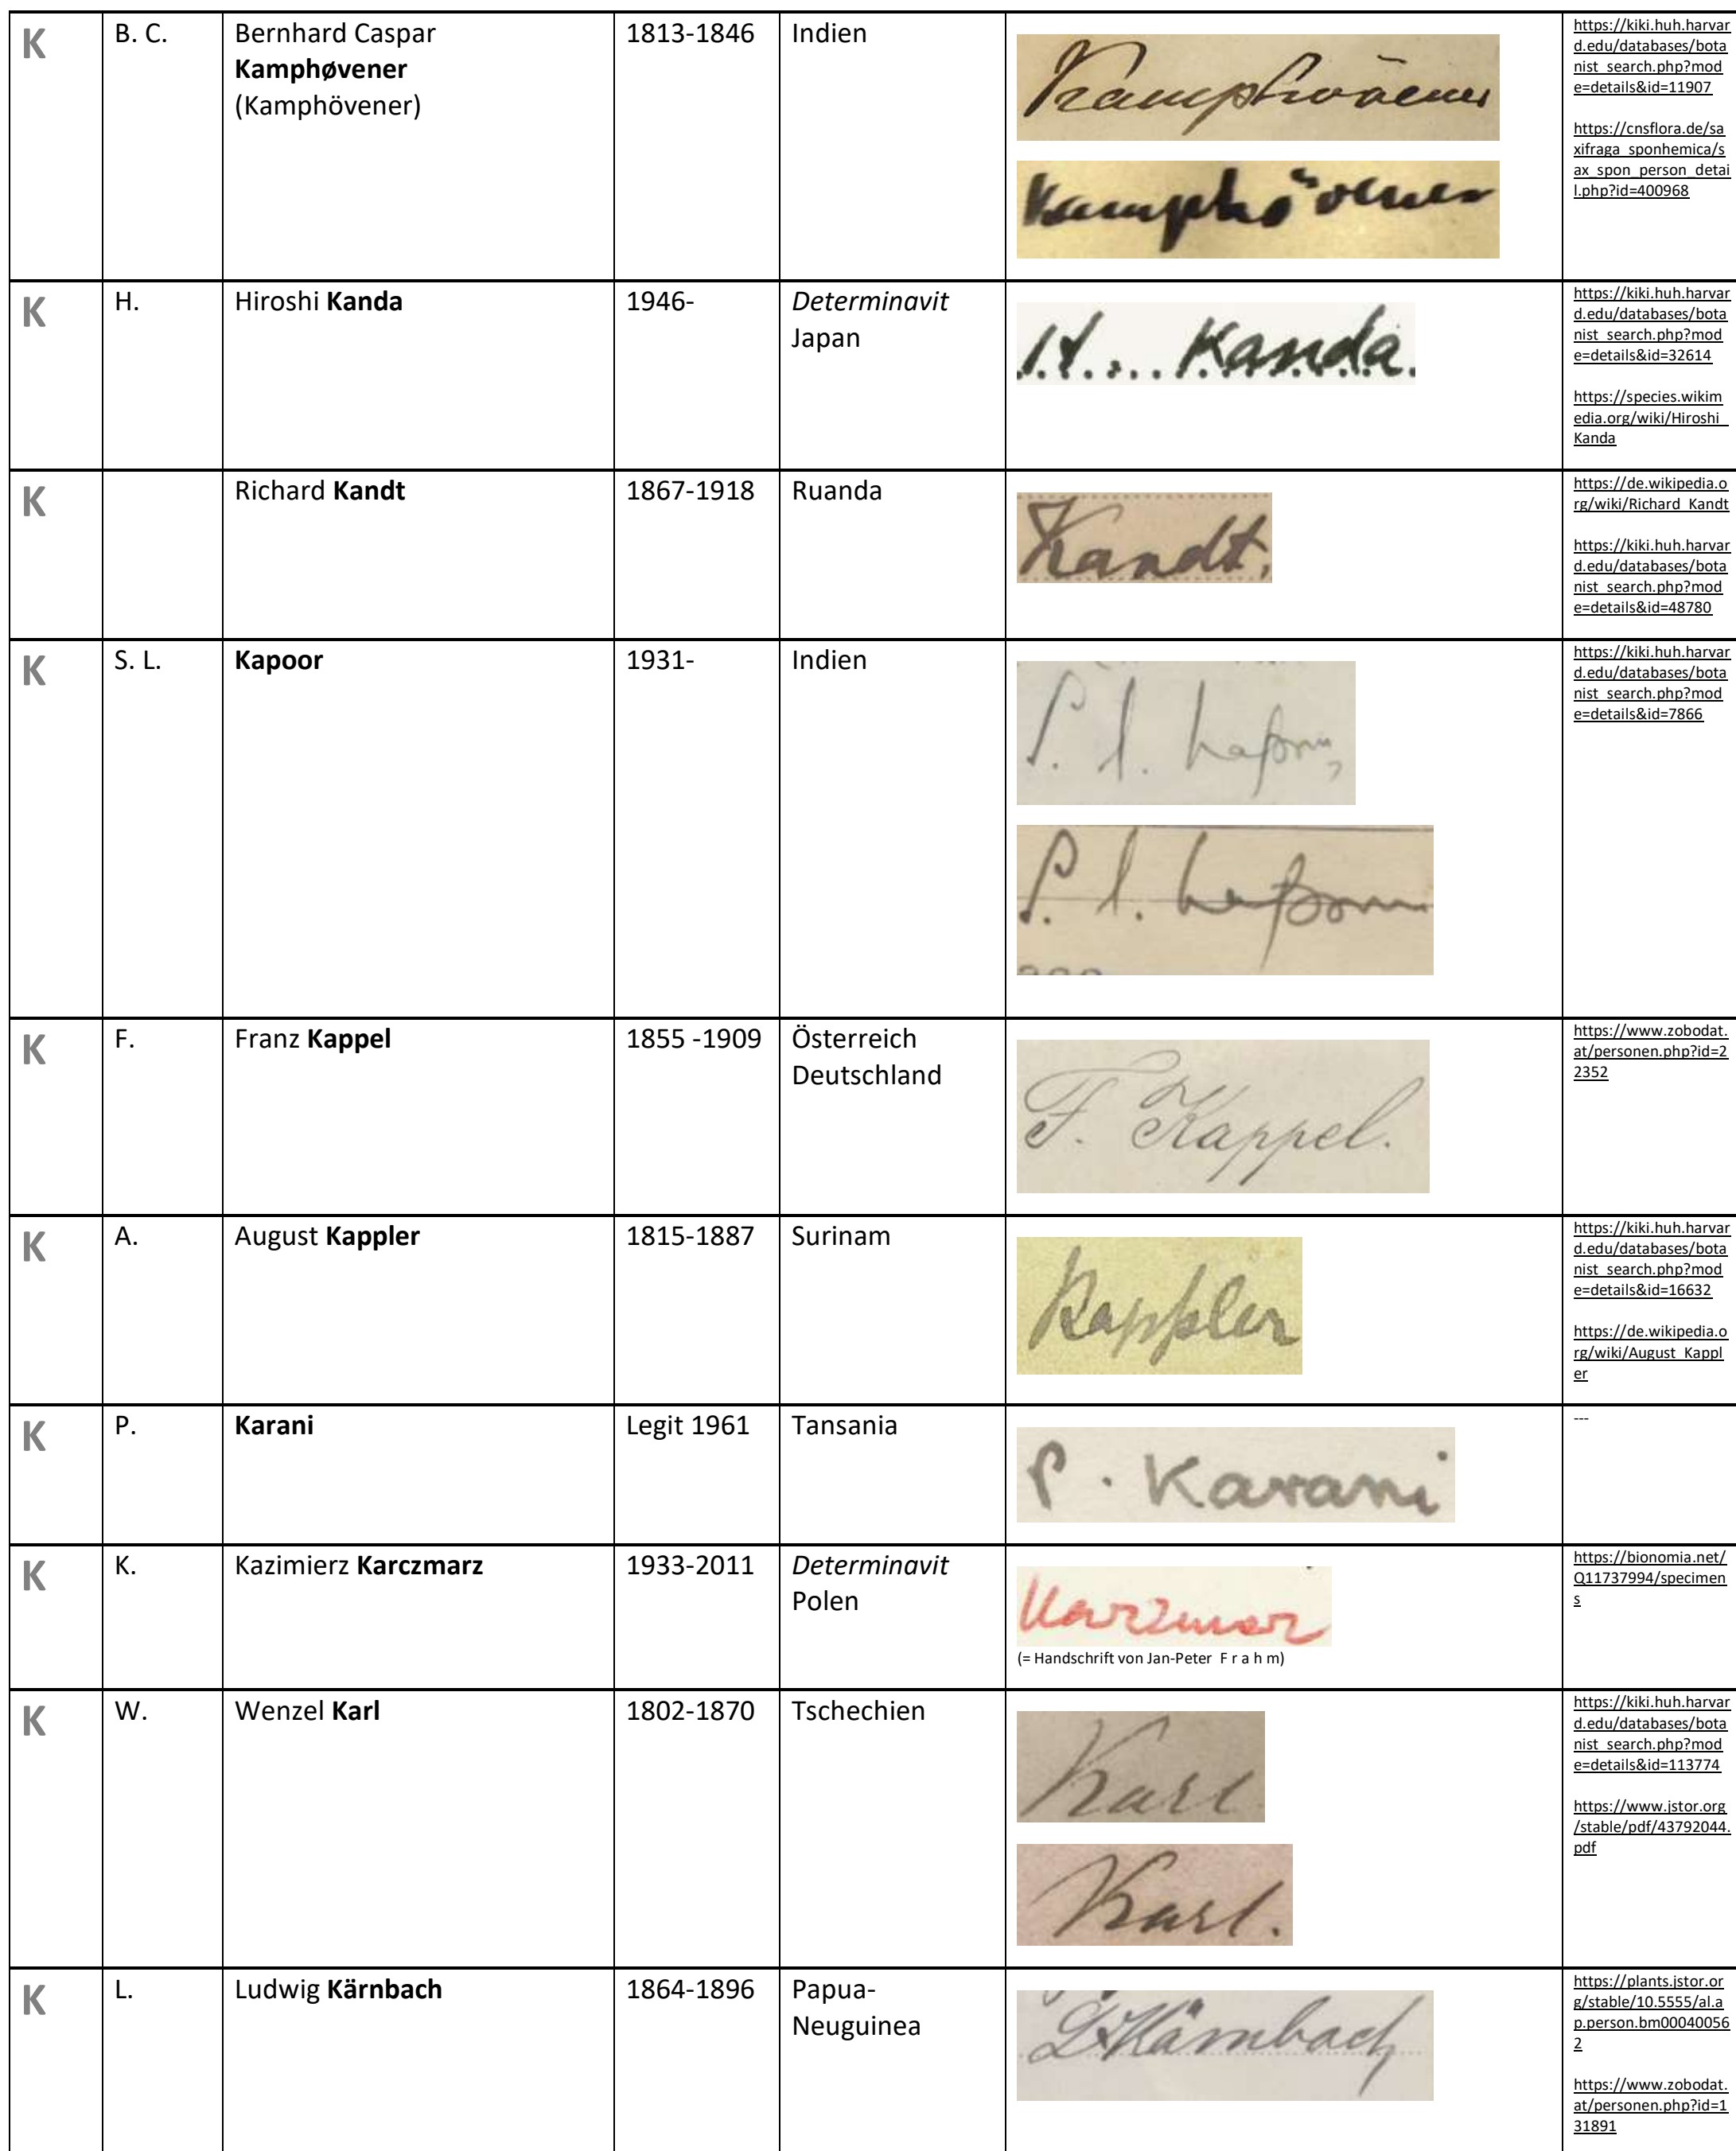 K
B. C.
Bernhard Caspar
Kamphøvener
(Kamphövener)
1813-1846
Indien
Kamphövener
Kamphövener
https://kiki.huh.harvar
d.edu/databases/bota
nist_search.php?mod
e=details&id=11907
https://cnsflora.de/sa
xifraga_sponhemica/s
ax_spon_person_detai
l.php?id=400968
K
H.
Hiroshi Kanda
1946-
Determinavit
Japan
H. Kanda.
https://kiki.huh.harvar
d.edu/databases/bota
nist_search.php?mod
e=details&id=32614
https://species.wikim
edia.org/wiki/Hiroshi_
Kanda
K
Richard Kandt
1867-1918
Ruanda
Kandt,
https://de.wikipedia.o
rg/wiki/Richard_Kandt
https://kiki.huh.harvar
d.edu/databases/bota
nist_search.php?mod
e=details&id=48780
K
S. L.
Kapoor
1931-
Indien
S. L. Kapoor
S. L. Kapoor
https://kiki.huh.harvar
d.edu/databases/bota
nist_search.php?mod
e=details&id=7866
K
F.
Franz Kappel
1855 -1909
Österreich
Deutschland
F. Kappel.
https://www.zobodat.
at/personen.php?id=2
2352
K
A.
August Kappler
1815-1887
Surinam
Kappler
https://kiki.huh.harvar
d.edu/databases/bota
nist_search.php?mod
e=details&id=16632
https://de.wikipedia.o
rg/wiki/August_Kappl
er
K
P.
Karani
Legit 1961
Tansania
P. Karani
---
K
K.
Kazimierz Karczmarz
1933-2011
Determinavit
Polen
Karzmar
(= Handschrift von Jan-Peter F r a h m)
https://bionomia.net/
Q11737994/specimen
s
K
W.
Wenzel Karl
1802-1870
Tschechien
Karl
Karl.
https://kiki.huh.harvar
d.edu/databases/bota
nist_search.php?mod
e=details&id=113774
https://www.jstor.org
/stable/pdf/43792044.
pdf
K
L.
Ludwig Kärnbach
1864-1896
Papua-
Neuguinea
L Kärnbach
https://plants.jstor.or
g/stable/10.5555/al.a
p.person.bm00040056
2
https://www.zobodat.
at/personen.php?id=1
31891